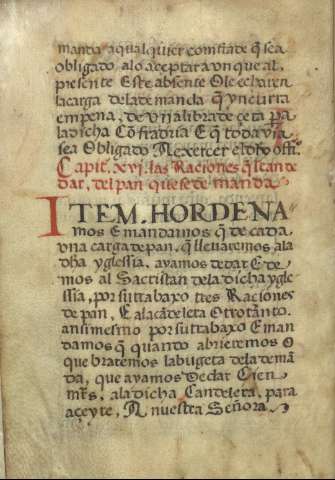 manda a qual quier comfrade q̃ sea
obligado alo aceptar a vn que al
presente Este absente Ole echaren
la carga dela demanda q̃ yncurra
en pena, de vna libra de çera pa
la dicha Confradia E q̃ todavia
sea Obligado A exercer el dho offi.º
Capit. xvj. las Raciones q̃ se an de
dar, del pan que se demanda
ITEM. HORDENA
mos E mandamos q̃ de cada
vna carga de pan. q̃ lleuaremos ala
dha yglessia. ayamos de dar E de
mos al Sacristan dela dicha ygle
ssia, por su trabaxo tres Raciones
de pan, E ala cãdelera Otro tãto.
ansimesmo por su trabaxo E man
damos q̃ quando abrieremos O
que brataremos la bugeta dela demã
da, que ayamos De dar Cien
mrs. ala dicha Candelera, para
açeyte, A nuestra Señora.